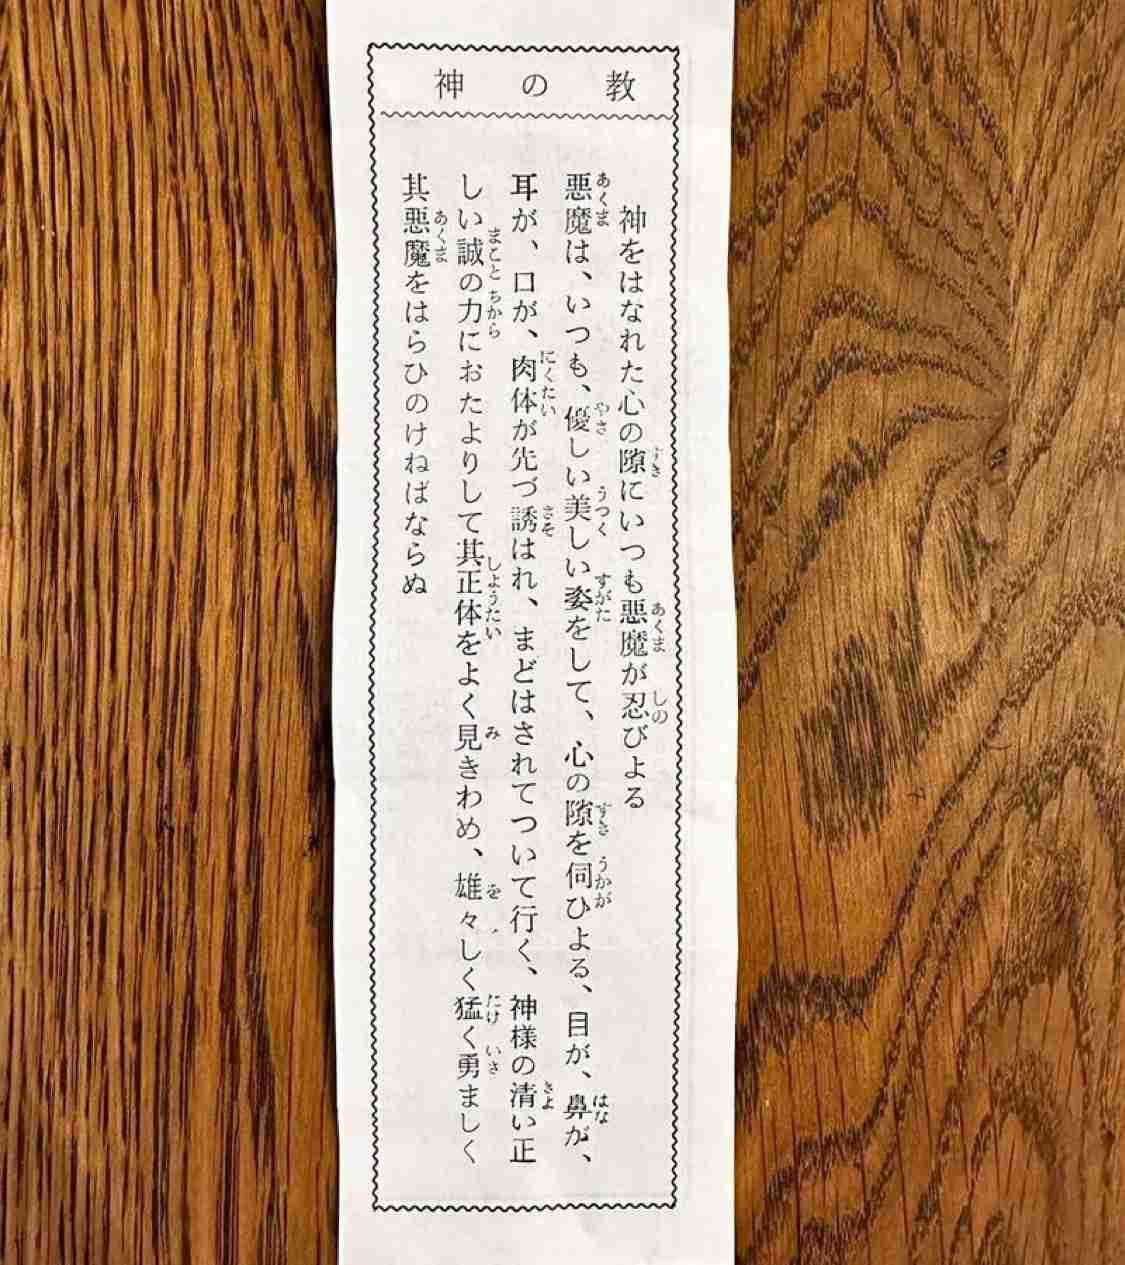 神の教
神をはなれた心の隙にいつも悪魔が忍びよる
悪魔は、いつも、優しい美しい姿をして、心の隙を伺ひよる、目が、鼻が、
耳が、口が、肉体が先づ誘はれ、まどはされてついて行く、神様の清い正
しい誠の力におたよりして其正体をよく見きわめ、雄々しく猛く勇ましく
其悪魔をはらひのけねばならぬ